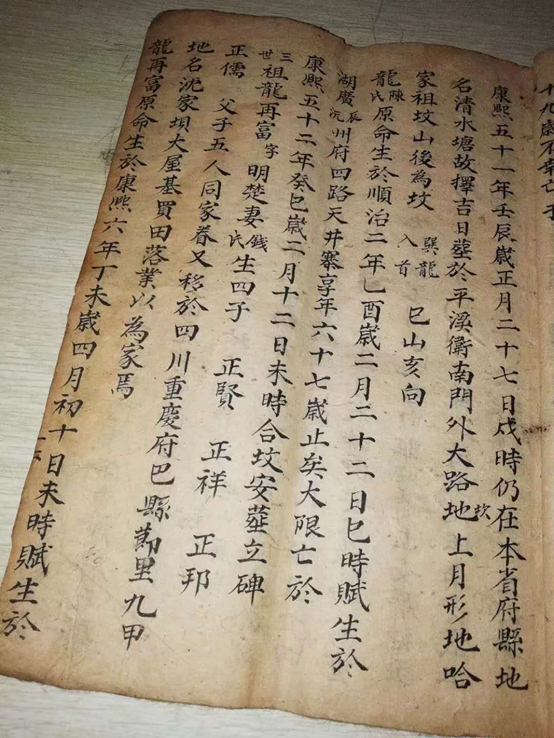 十九歲
康熙五十一年壬辰歲正月二十七日戌時仍在本省府縣地
名清水塘故擇吉日葬於平溪衛南門外大路坎上月形地哈
家祖坟山後為坟 巽龍入首 巳山亥向
龍陳氏原命生於順治二年乙酉歲二月二十二日巳時賦生於
湖廣辰沅州府四路天井寨享年六十七歲止矣大限亡於
康熙五十二年癸巳歲二月十二日未時合坟安葬立碑
三世祖龍再富字明楚妻錢氏生四子 正賢 正祥 正邦
正儒 父子五人同家眷又移於四川重慶府巴縣節里九甲
地名沈家壩大屋基買田落業以為家焉
龍再富原命生於康熙六年丁未歲四月初十日未時賦生於